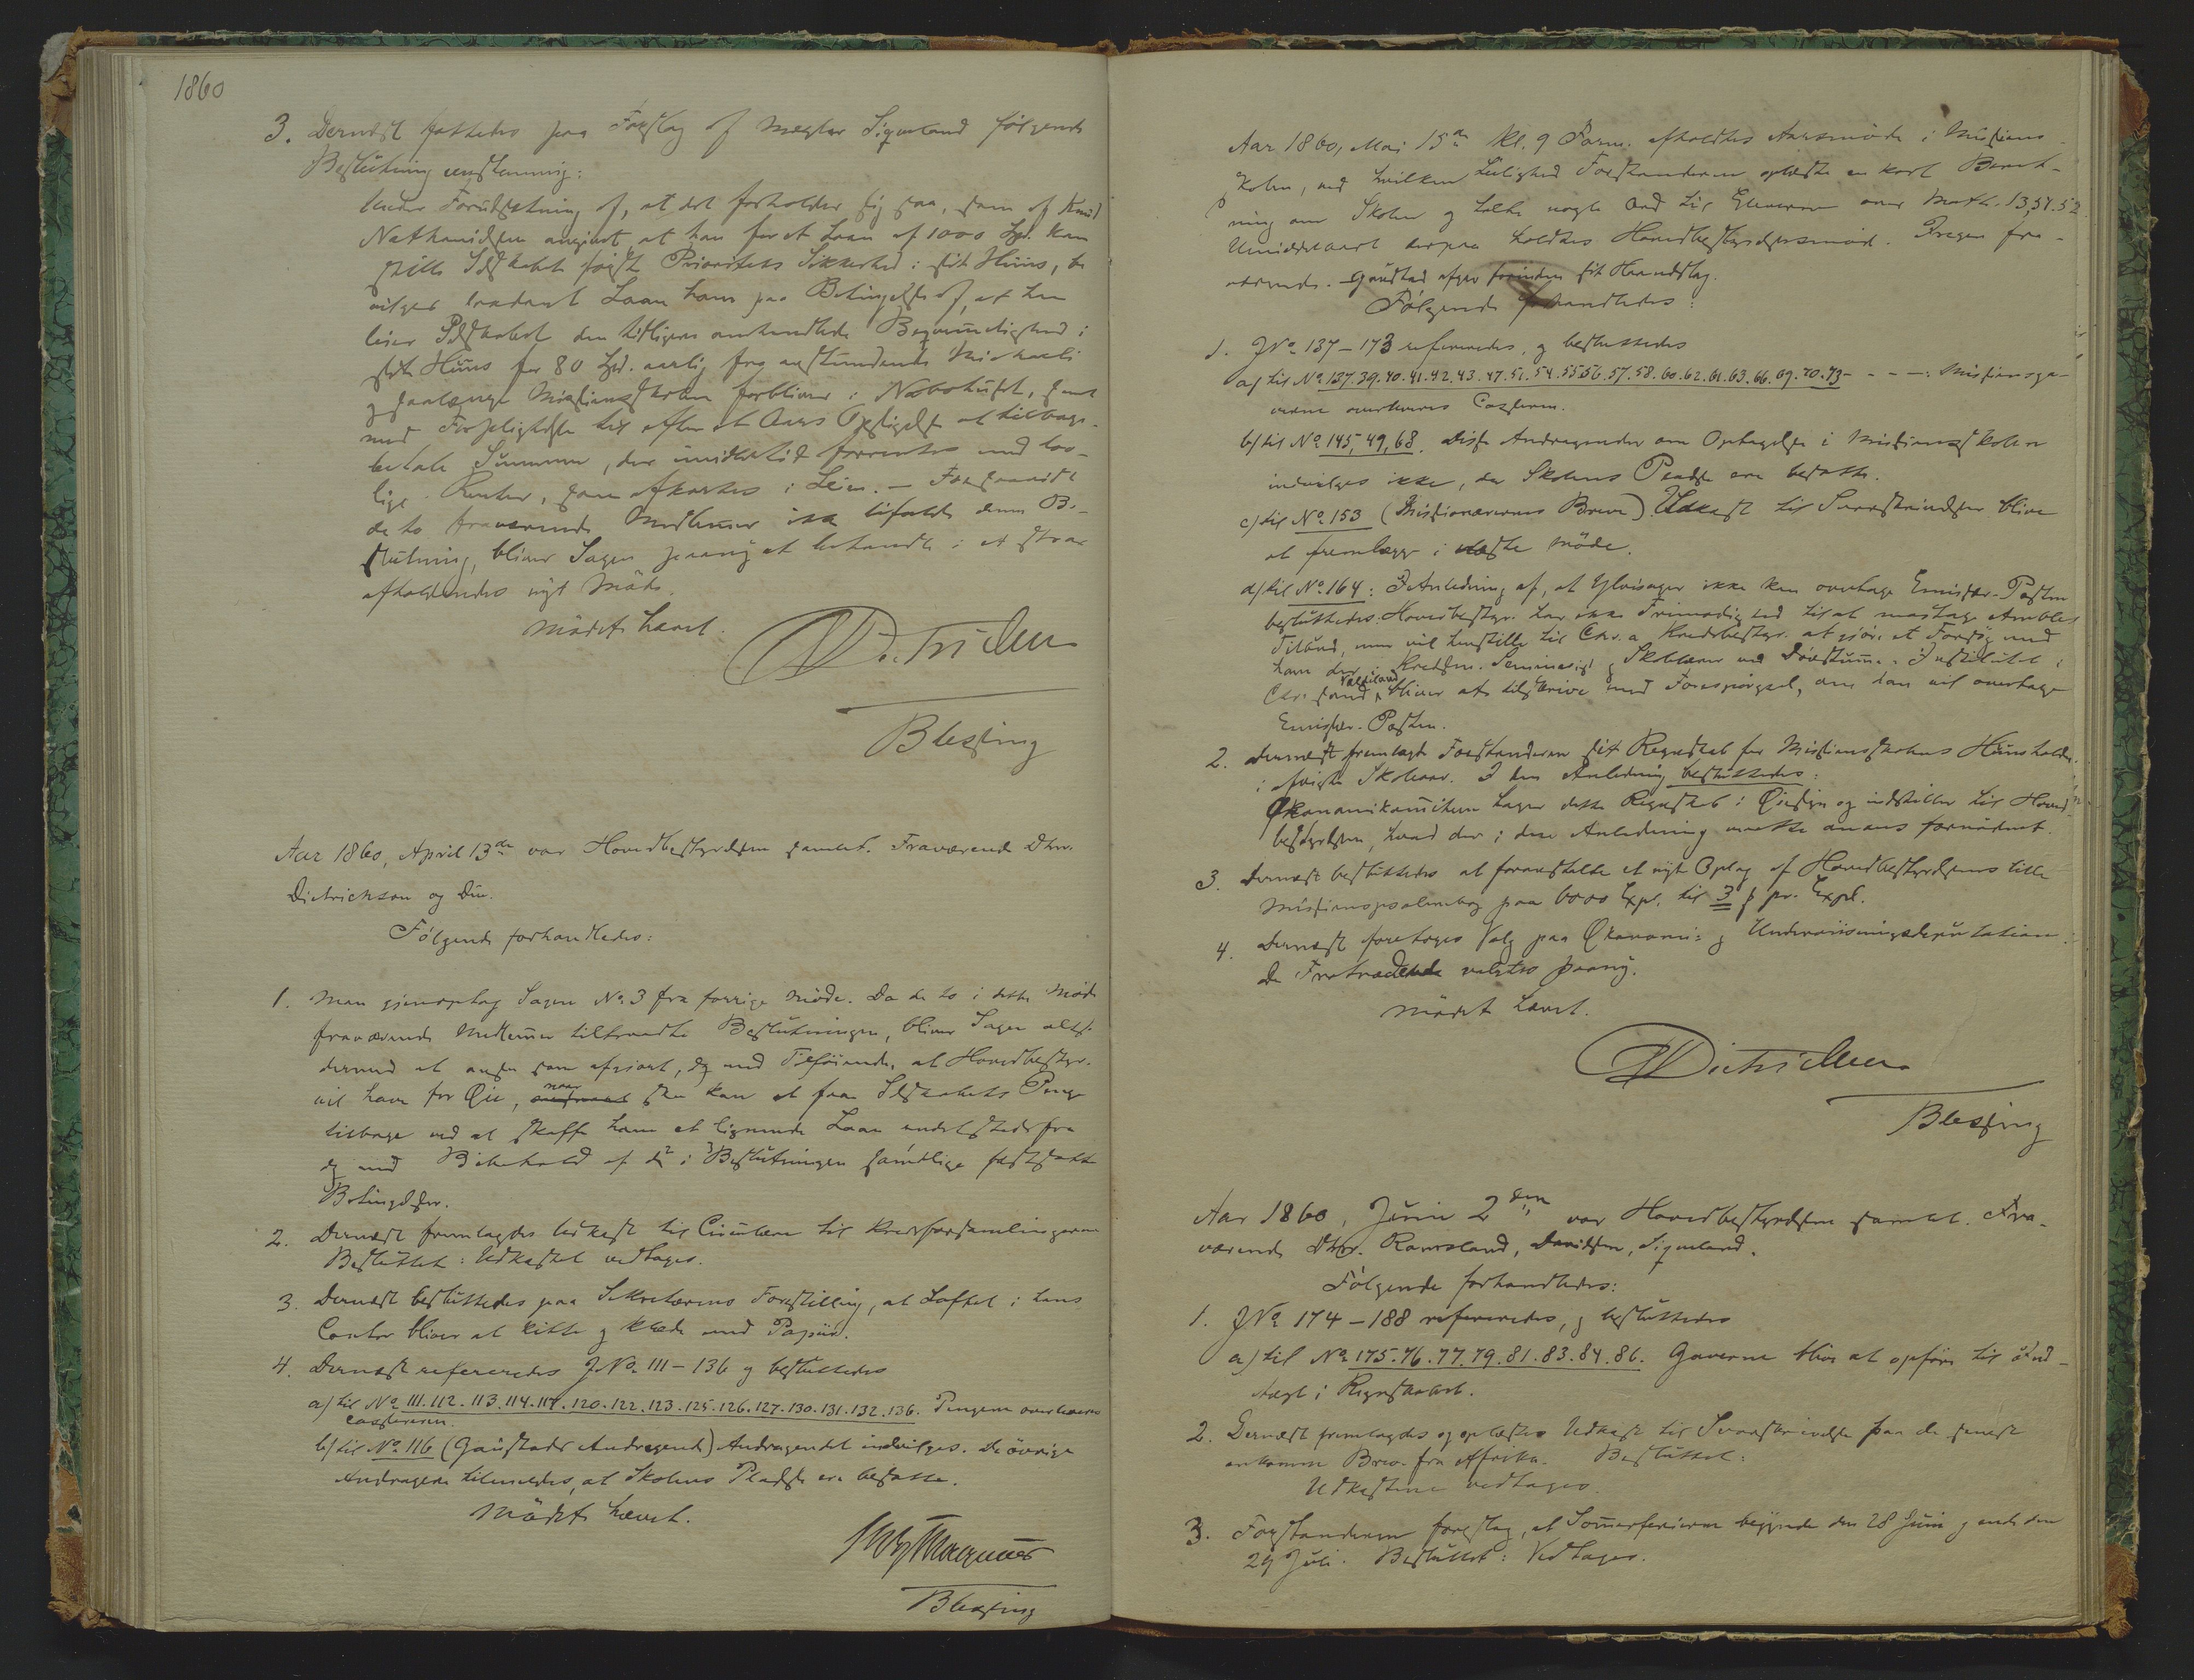 1860
3. Dernæst fattedes paa Forslag af Mægler Sigmeland følgende
Beslutning eenstemmig:
Under Forudsætning af, at det forholder sig saa, som af Knud
Nathanielsen angivet, at han for et Laan af 1000 Spd. kan
stille Selskabet første Prioritets Sikkerhed i sit Huus, be
vilges saadant Laan ham paa Betingelse af, at han
leier Selskabet den tidligere omhandlede Beqvemmelighed i
sit Huus for 80 Spd. aarlig fra anstundende Michaeli
og saalænge Missionsskolen forbliver i Nabohuset, samt
med Forpligtelse til efter et Aars Opsigelse at tilbage-
betale Summen, der imidlertid forrentes med lov-
lige Renter, som afkortes i Leien. – Forsaavidt
de to fraværende Medlemmer ikke bifalde denne Be-
slutning, bliver Sagen paany at behandle i et snar
afholdendes nyt Møde.
Mødet hævet.
Blessing
Aar 1860, April 13de var Hovedbestyrelsen samlet. Fraværende Dhrr.
Dietrichson og Due.
Følgende forhandledes:
1. Man gjenoptog Sagen No. 3 fra forrige Møde. Da de to i dette Møde
fraværende Medlemmer tiltraadte Beslutningen, bliver Sagen altsaa
dermed at ansee som afgjort, dog med Tilføiende, at Hovedbestyr.
vil have for Øie, naar skee kan at faae Selskabets Penge
tilbage ved at skaffe ham et lignende Laan andetstedsfra
dog med Bibehold af de i Beslutningen samtlige fastsatte
Betingelser.
2. Dernæst fremlagdes Udkast til Circulære til Kredsforsamlingerne
Besluttet: Udkastet vedtages.
3. Dernæst besluttedes paa Sekretærens Forestilling, at Loftet i hans
Contor bliver at kitte og klæde med Papiir.
4. Dernæst refereredes JNo. 111–136 og besluttedes
a) til No. 111.112.113.114.117.120.122.123.125.126.127.130.131.132.136. Pengene overleveres
Cassereren.
b) til No. 116 (Gaustads Andragende) Andragendet indvilges. De øvrige
Andragere tilmeldes, at Skolens Pladse ere besatte.
Mødet hævet.
Blessing
Aar 1860, Mai 15de Kl. 9 Form. afholdtes Aarsmøde i Missions
skolen, ved hvilken Leilighed Forstanderen oplæste en kort Beret-
ning om Skolen og talte nogle Ord til Eleverne over Math. 13,51.52.
Umiddelbart derpaa holdtes Hovedbestyrelsesmøde. Ingen fra-
værende. Gaustad afgav forinden sit Haandslag.
Følgende forhandledes:
1. JNo. 137–173 refereredes, og besluttedes
a) til No. 137.39.40.41.42.43.47.51.54.55.56.57.58.60.62.61.63.66.69.70.73 – – – : Missionsga-
verne overleveres Cassereren.
b) til No. 145, 49, 68. Disse Andragender om Optagelse i Missionsskolen
indvilges ikke, da Skolens Pladse ere besatte.
c) til No. 153 (Missionærernes Breve). Udkast til Svarskrivelser blive
at fremlægge i næste Møde.
d) til No. 164: I Anledning af, at Ylvisager ikke kan overtage Emissær-Posten
besluttedes: Hovedbestyr. har ikke Frimodighed til at modtage Ambles
Tilbud, men vil henstille til Chr.a Kredsbestyr. at gjøre et Forsøg med
ham der i Kredsen. Seminarist og Skolelærer ved Døvstumme-Institutet i
Chr.sand bliver at tilskrive med Forespørgsel, om han vil overtage
Emissær-Posten.
2. Dernæst fremlagde Forstanderen sit Regnskab for Missionsskolens Huusholdn.
i afvigte Skoleaar. I den Anledning besluttedes:
Økonomikomiteen tager dette Regnskab i Øiesyn og indstiller til Hoved-
bestyrelsen, hvad der i den Anledning maatte ansees fornødent.
3. Dernæst besluttedes at foranstalte et nyt Oplag af Hovedbestyrelsens lille
Missionspsalmebog paa 6000 Expl. til 3 ß pr. Expl.
4. Dernæst foretoges Valg paa Økonomi- og Underviisningsdeputation.
De Fratrædende valgtes paany.
Mødet hævet.
Blessing
Aar 1860, Juni 2den var Hovedbestyrelsen samlet. Fra-
værende Dhrr. Ramsland, Davidsen, Sigmeland.
Følgende forhandledes:
1. JNo. 174–188 refereredes, og besluttedes
a) til No. 175.76.77.79.81.83.84.86. Gaverne blive at opføre til Ind-
tægt i Regnskabet.
2. Dernæst fremlagdes og oplæstes Udkast til Svarskrivelse paa de senest
ankomne Breve fra Afrika. Besluttet:
Udkastene vedtages.
3. Forstanderen foreslog, at Sommerferierne begynde den 28 Juni og ende den
29 Juli. Besluttet: Vedtages.